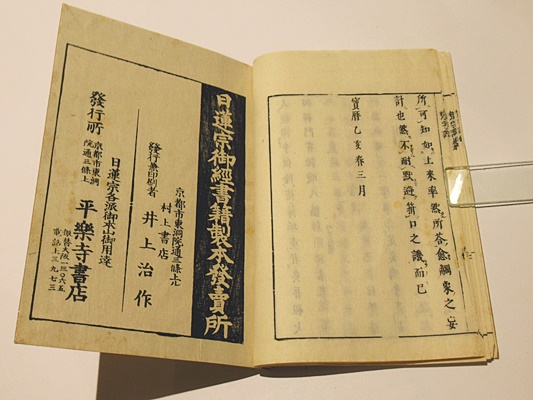 所可知如上來率然所答愈綢象之妄
計也然不耐默避箝口之譏而已
寶曆乙亥春三月
日蓮宗御經書籍製本發賣所
京都市東洞院通三條上ル
村上書店
發行兼印刷者 井上治作
日蓮宗各派御本山御用達
發行所 京都市東洞院通三條上 平樂寺書店
振替大阪一三〇六五
電話上三九七三